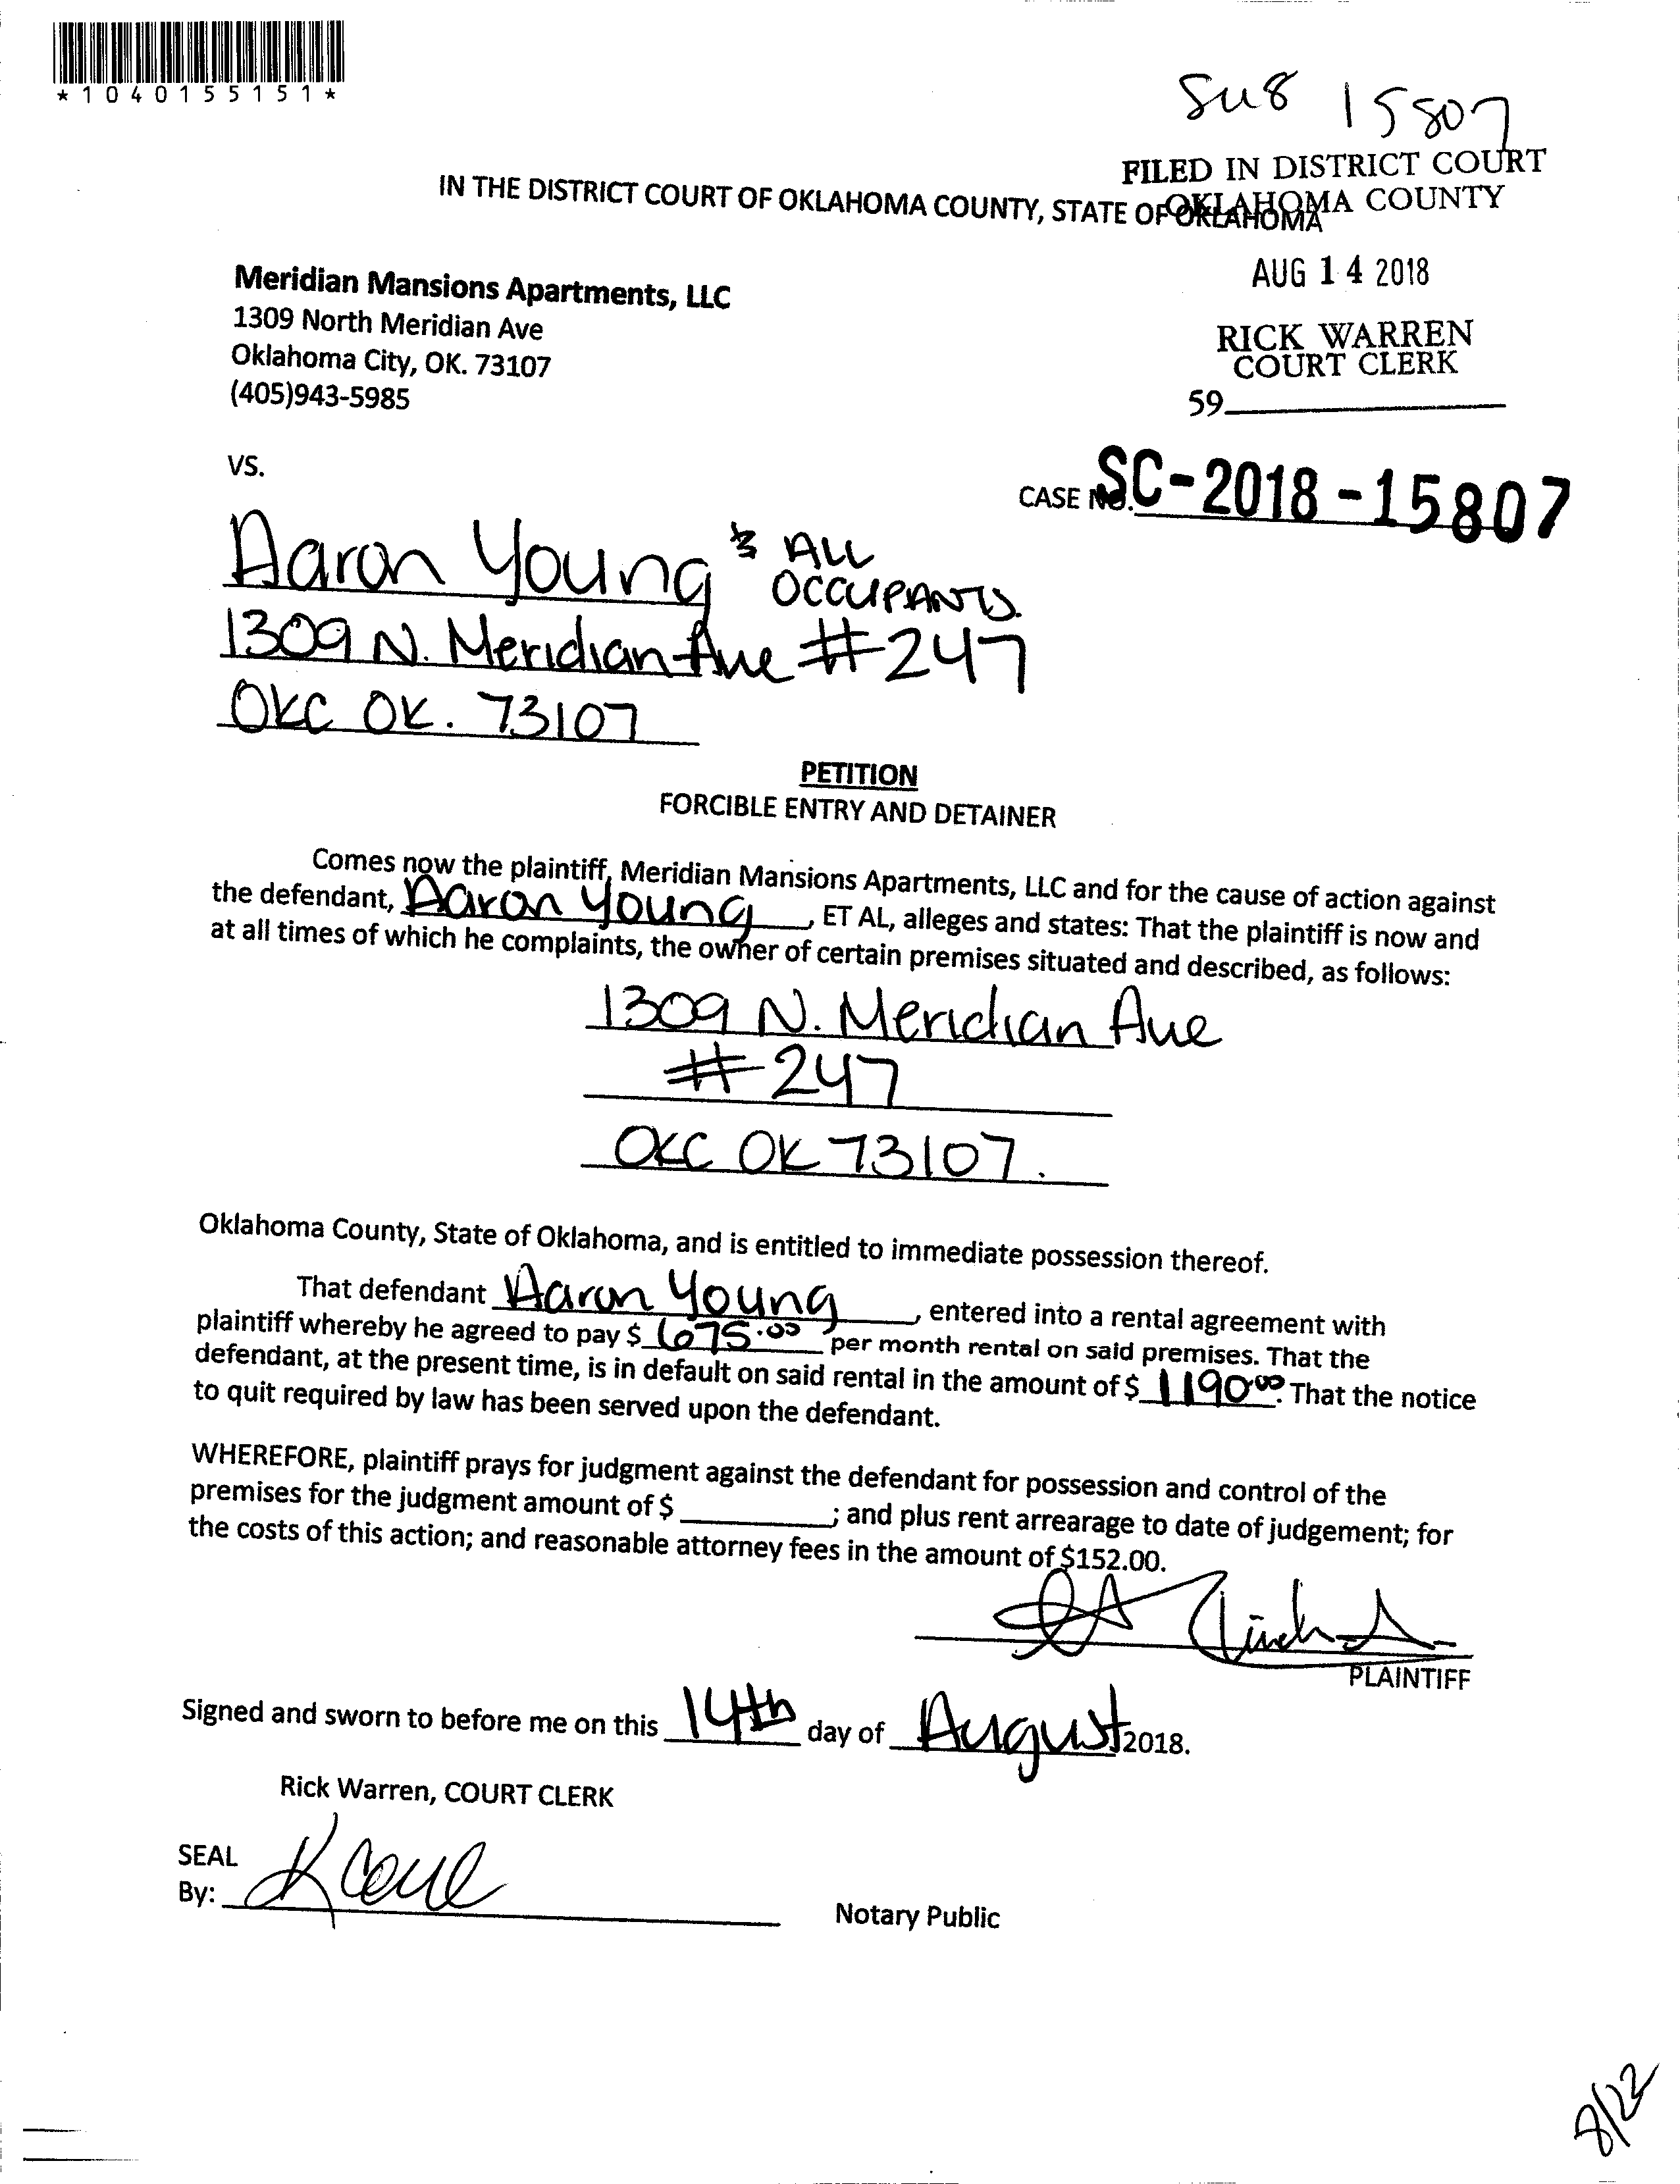 *1040155151*
Su8 15807
FILED IN DISTRICT COURT
OKLAHOMA COUNTY
IN THE DISTRICT COURT OF OKLAHOMA COUNTY, STATE OF OKLAHOMA
AUG 14 2018
RICK WARREN
COURT CLERK
59
Meridian Mansions Apartments, LLC
1309 North Meridian Ave
Oklahoma City, OK. 73107
(405)943-5985
VS.
CASE NO. SC-2018-15807
Aaron Young & ALL
OCCUPANTS.
1309 N. Meridian Ave #247
OKC OK. 73107
PETITION
FORCIBLE ENTRY AND DETAINER
Comes now the plaintiff, Meridian Mansions Apartments, LLC and for the cause of action against
the defendant, Aaron Young, ET AL, alleges and states: That the plaintiff is now and
at all times of which he complaints, the owner of certain premises situated and described, as follows:
1309 N. Meridian Ave
#247
OKC OK 73107.
Oklahoma County, State of Oklahoma, and is entitled to immediate possession thereof.
That defendant Aaron Young, entered into a rental agreement with
plaintiff whereby he agreed to pay $ 675.00 per month rental on said premises. That the
defendant, at the present time, is in default on said rental in the amount of $ 1190.00. That the notice
to quit required by law has been served upon the defendant.
WHEREFORE, plaintiff prays for judgment against the defendant for possession and control of the
premises for the judgment amount of $ ; and plus rent arrearage to date of judgement; for
the costs of this action; and reasonable attorney fees in the amount of $152.00.
PLAINTIFF
Signed and sworn to before me on this 14th day of August 2018.
Rick Warren, COURT CLERK
SEAL
By:
Notary Public
8/22